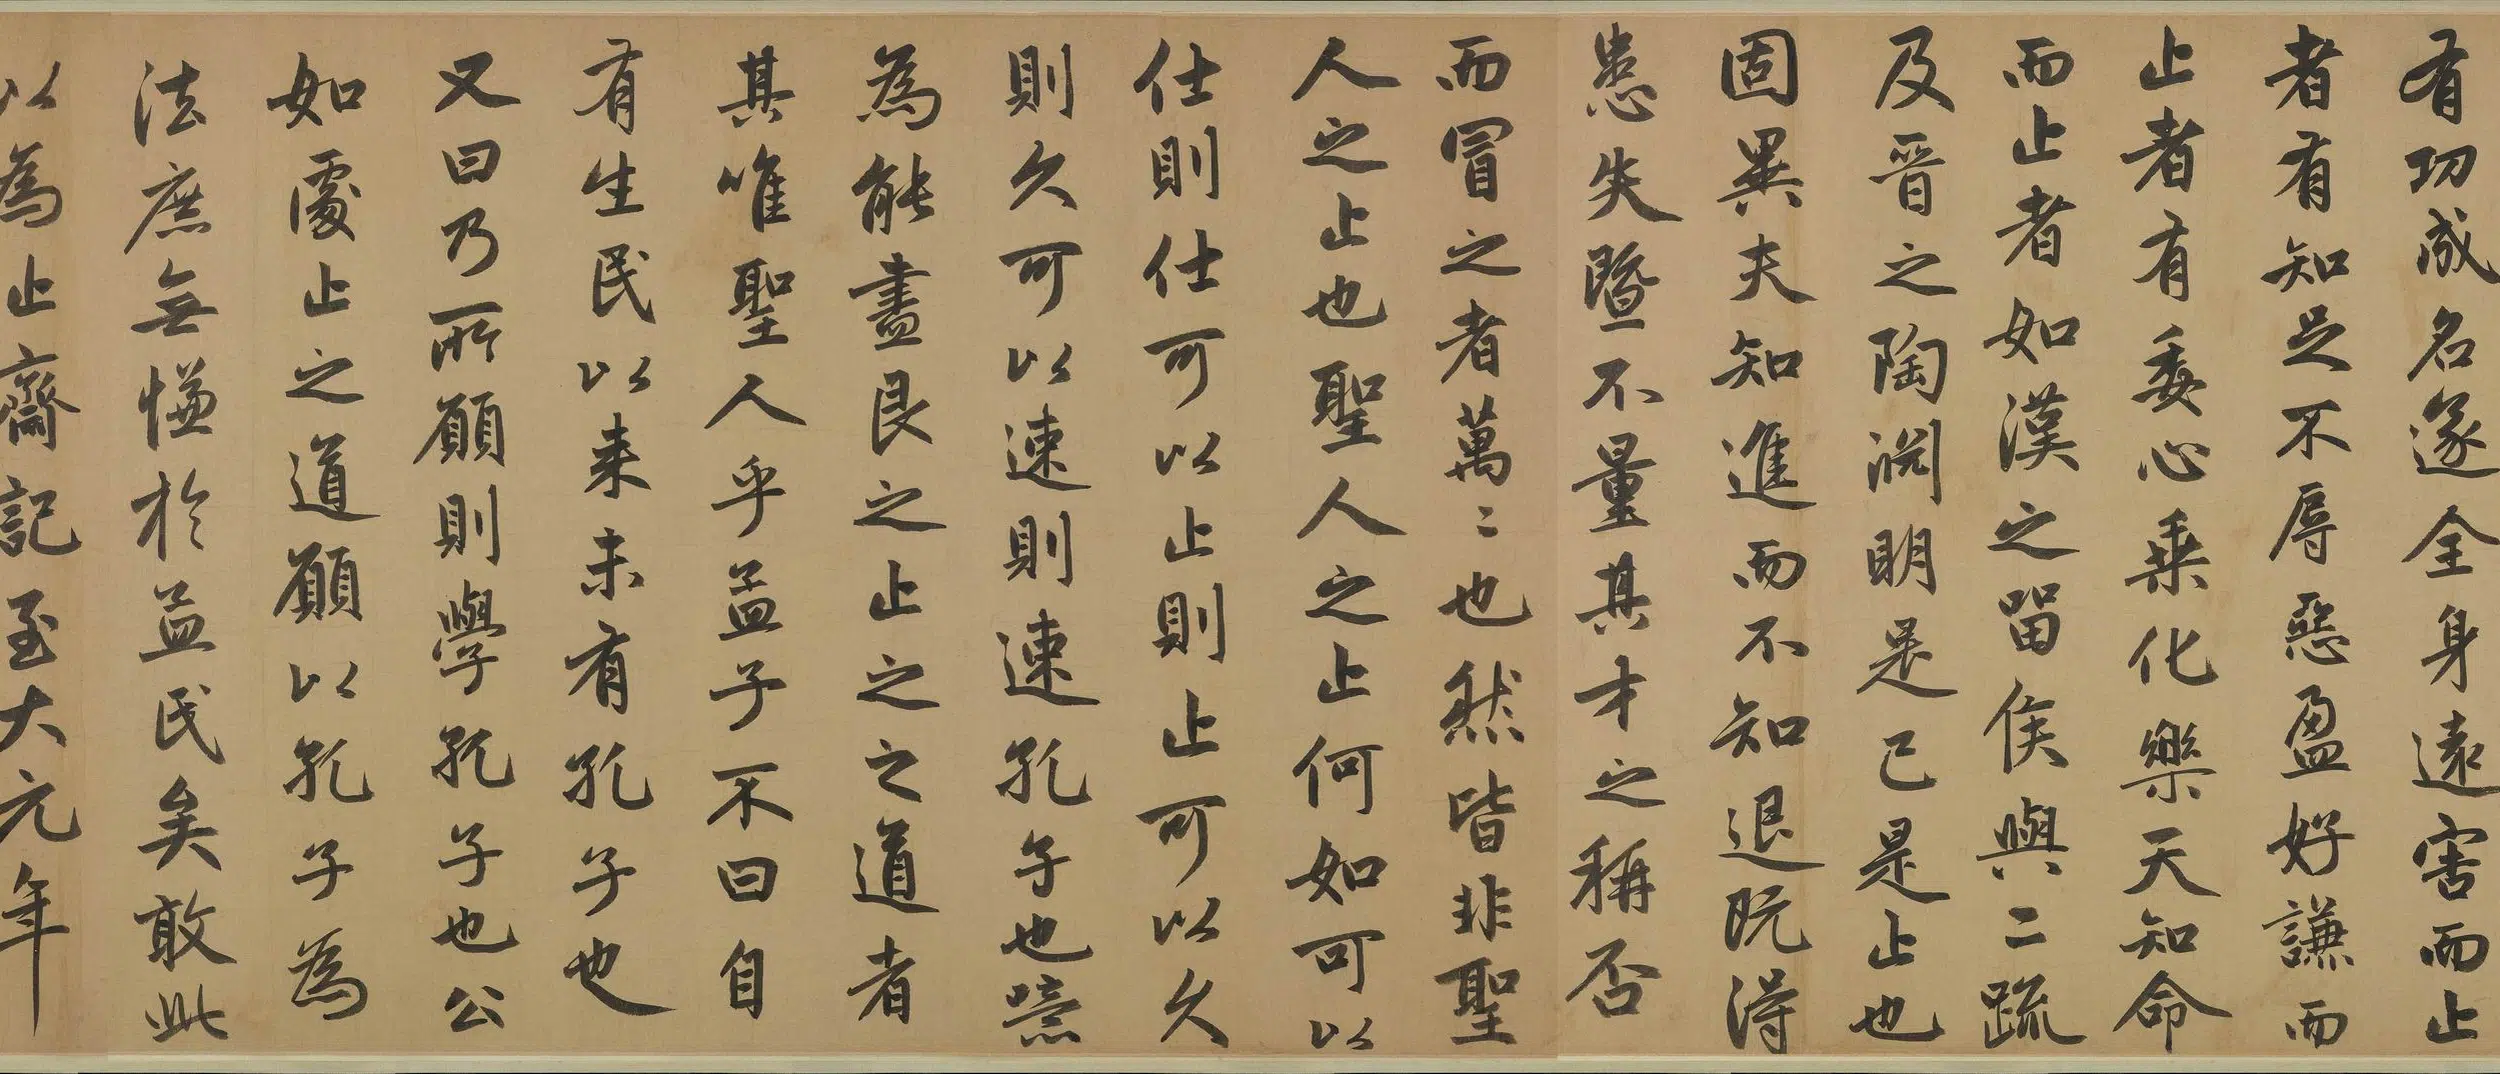 有功成名遂全身遠害而止
者有知足不辱惡盈好謙而
止者有委心乗化樂天知命
而止者如漢之留侯與二疏
及晉之陶渊明是已是止也
固異夫知進而不知退既得
患失曁不量其才之稱否
而冒之者萬〻也然皆非聖
人之止也聖人之止何如可以
仕則仕可以止則止可以久
則久可以速則速孔子也噫
為能盡艮之止之之道者
其唯聖人乎孟子不曰自
有生民以来未有孔子也
又曰乃所願則學孔子也公
如處止之道願以孔子為
法庶無慊於益民矣敢此
以為止齋記至大元年